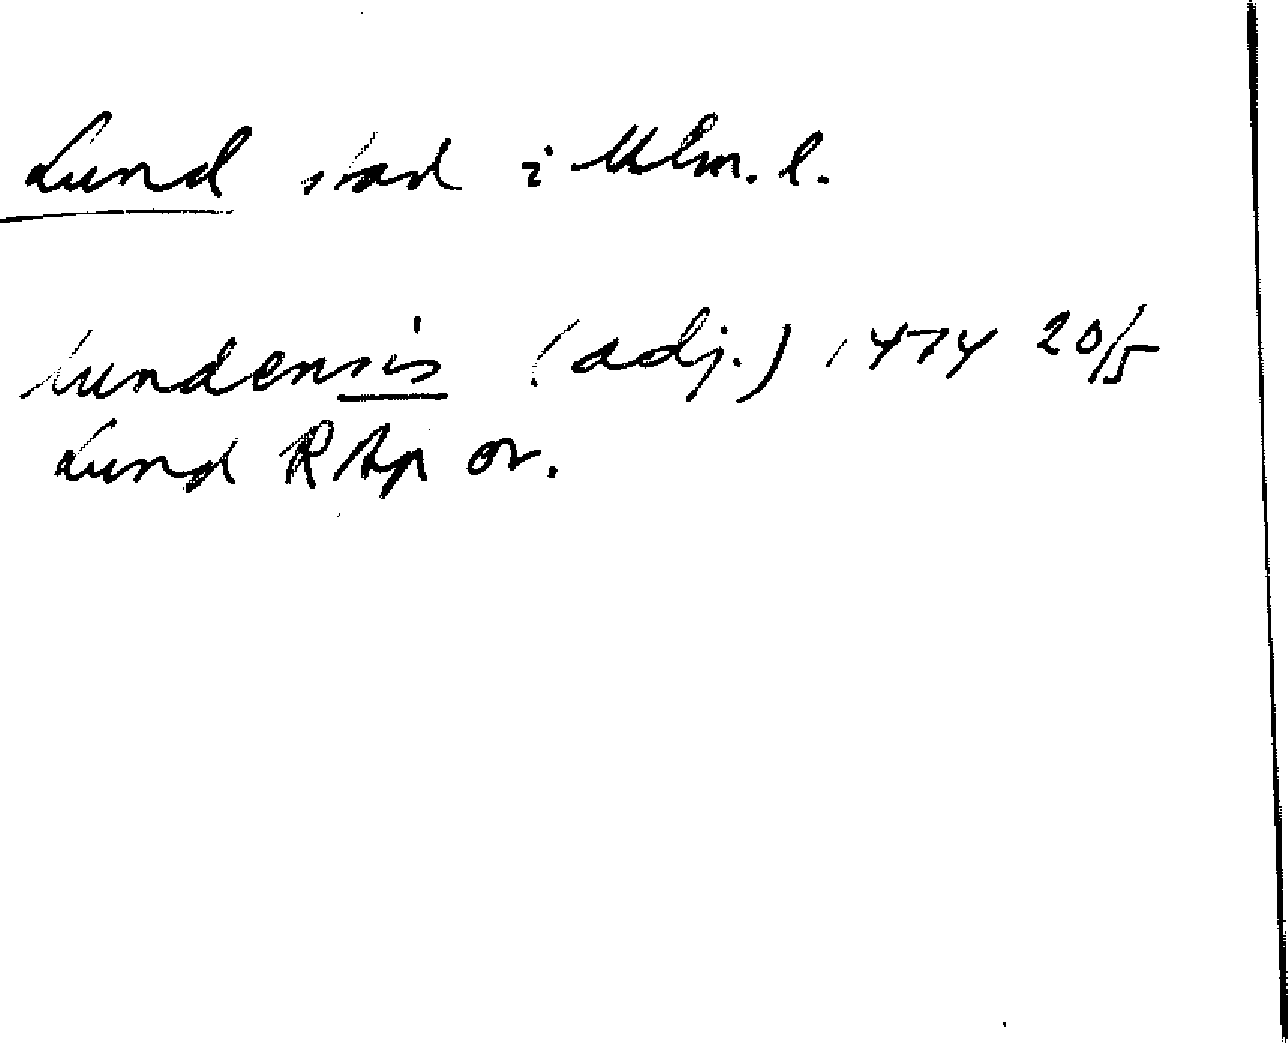 Lund stad i Mlm. l.
lundensis (adj.) 1474 20/5
Lund RAp or.